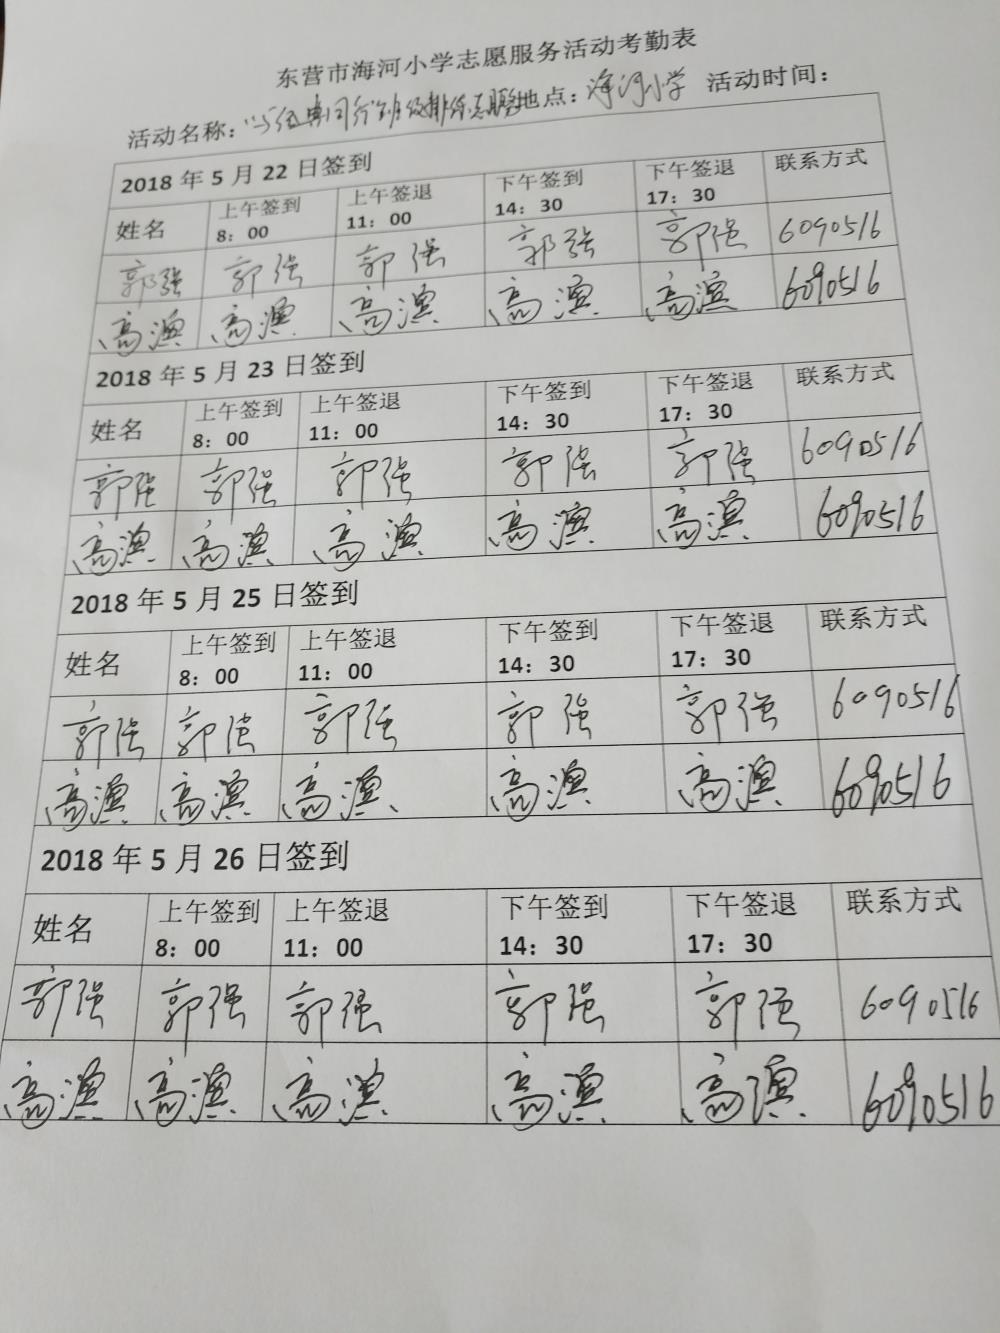 东营市海河小学志愿服务活动考勤表
活动名称：“与经典同行”班级排练志愿服务 地点：海河小学 活动时间：
2018 年 5 月 22 日签到
姓名 上午签到 8：00 上午签退 11：00 下午签到 14：30 下午签退 17：30 联系方式
郭强 郭强 郭强 郭强 郭强 6090516
高渔 高渔 高渔 高渔 高渔 6090516
2018 年 5 月 23 日签到
姓名 上午签到 8：00 上午签退 11：00 下午签到 14：30 下午签退 17：30 联系方式
郭强 郭强 郭强 郭强 郭强 6090516
高渔 高渔 高渔 高渔 高渔 6090516
2018 年 5 月 25 日签到
姓名 上午签到 8：00 上午签退 11：00 下午签到 14：30 下午签退 17：30 联系方式
郭强 郭强 郭强 郭强 郭强 6090516
高渔 高渔 高渔 高渔 高渔 6090516
2018 年 5 月 26 日签到
姓名 上午签到 8：00 上午签退 11：00 下午签到 14：30 下午签退 17：30 联系方式
郭强 郭强 郭强 郭强 郭强 6090516
高渔 高渔 高渔 高渔 高渔 6090516